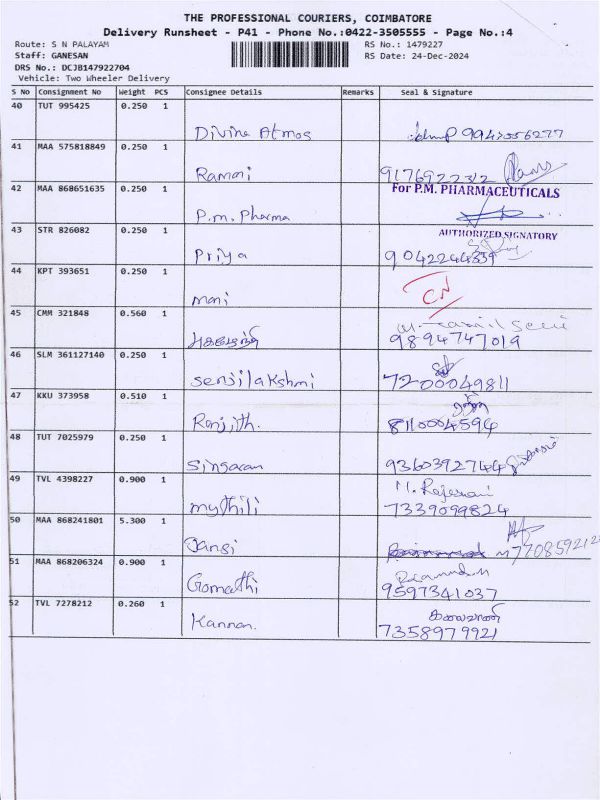 THE PROFESSIONAL COURIERS, COIMBATORE
Delivery Runsheet - P41 - Phone No.:0422-3505555 - Page No.:4
Route: S N PALAYAM
RS No.: 1479227
Staff: GANESAN
RS Date: 24-Dec-2024
DRS No.: DCJB147922704
Vehicle: Two Wheeler Delivery
S No Consignment No Weight PCS Consignee Details Remarks Seal & Signature
40 TUT 995425 0.250 1
Divine Atmos
41 MAA 575818849 0.250 1
Ramani 9176922312
42 MAA 868651635 0.250 1 For P.M. PHARMACEUTICALS
P.m. Pharma
43 STR 826082 0.250 1 AUTHORIZED SIGNATORY
Priya 9042244339
44 KPT 393651 0.250 1
mani CN
45 CMM 321848 0.560 1
9894747019
46 SLM 361127140 0.250 1
Senjilakshmi 7200049811
47 KKU 373958 0.510 1
Ranjith. 8110004594
48 TUT 7025979 0.250 1
Singaran 9360392744
49 TVL 4398227 0.900 1
M. Rajeswari
mythili 7339099824
50 MAA 868241801 5.300 1
Jansi
51 MAA 868206324 0.900 1
Gomathi 9597341037
52 TVL 7278212 0.260 1
கலைவாணி
Kannan. 7358979921